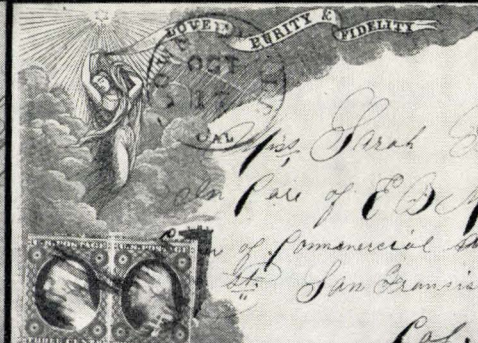 LOVE PURITY & FIDELITY
OCT
17
CAL
Miss Sarah
In Care of E B
of Commercial
St. San Francis
Cal.
U.S. POSTAGE U.S. POSTAGE
THREE CENTS